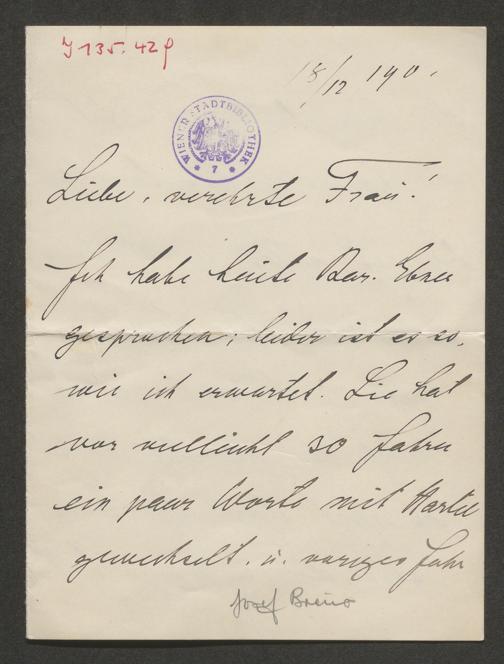 J 135.429
18/12 1901
WIENER STADTBIBLIOTHEK
* 7 *
Liebe, verehrte Frau!
Ich habe heute Bar. Ebner
gesprochen; leider ist es so,
wie ich erwartet. Sie hat
vor vielleicht 30 Jahren
ein paar Worte mit Hartel
gewechselt, u. voriges Jahr
Josef Breuer